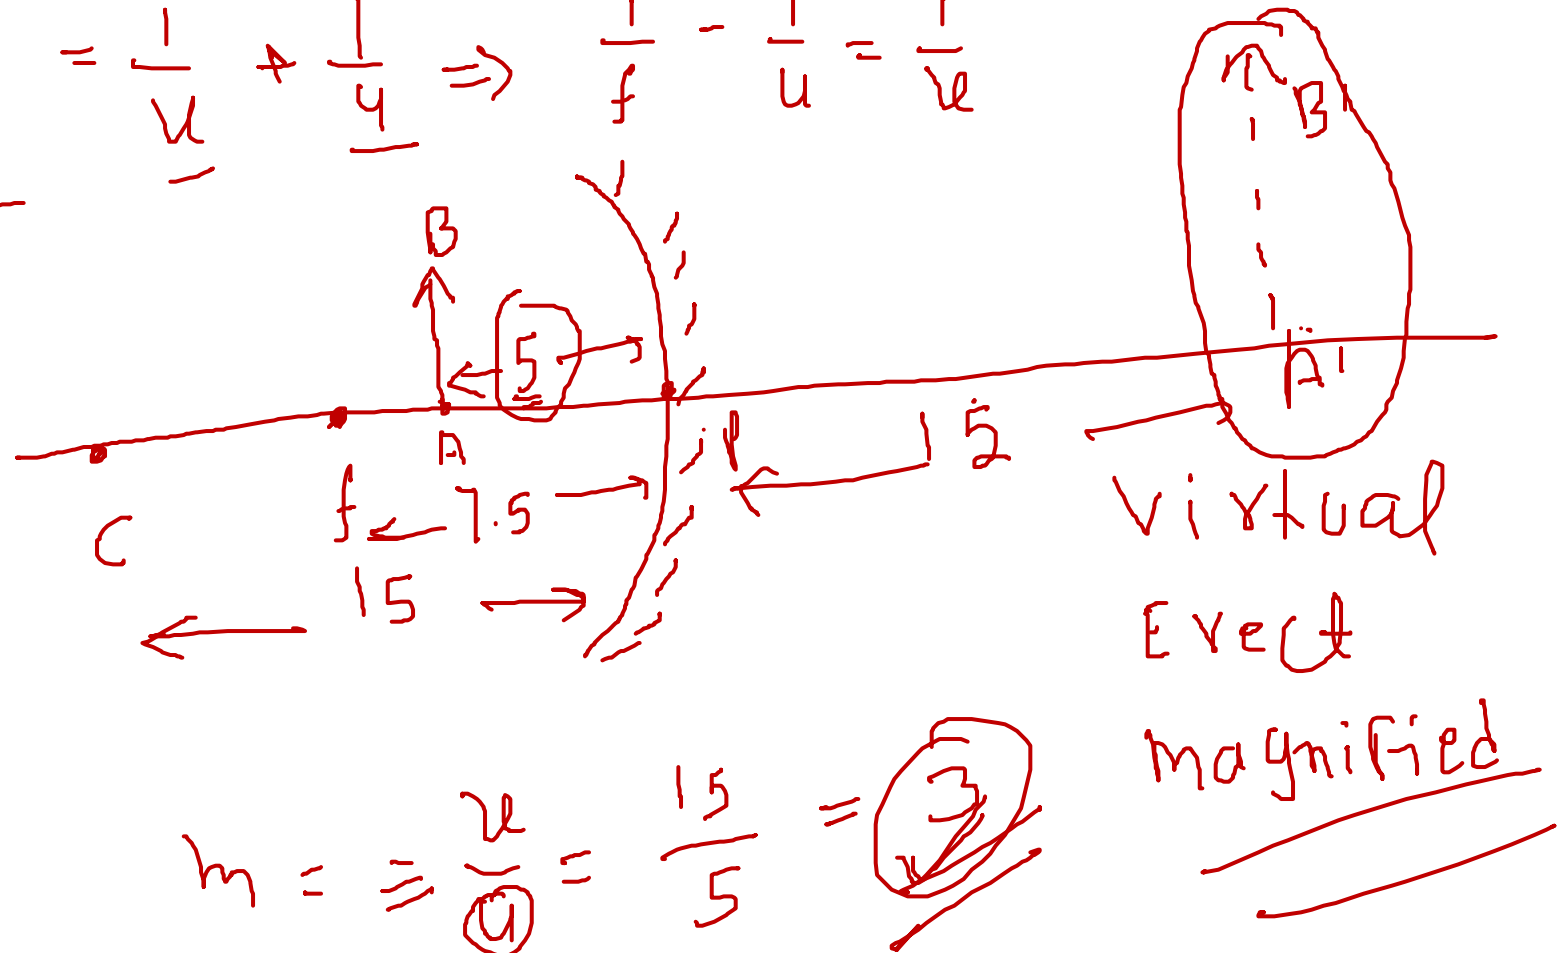 = 1/v + 1/u ⇒ 1/f - 1/u = 1/v
B'
B
5
A'
A
P
15
f
7.5
C
15
Virtual
Erect
magnified
m = = v/u = 15/5 = 3